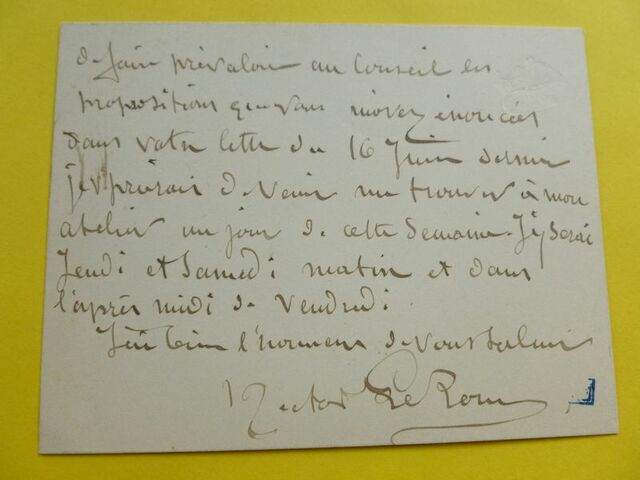 de faire prévaloir au Conseil les
propositions que vous m'avez énoncées
dans votre lettre du 16 Juin dernier
je vous prierais de venir me trouver à mon
atelier un jour de cette Semaine. J'y serai
Jeudi et Samedi matin et dans
l'après midi de Vendredi.
J'ai bien l'honneur de vous saluer
Hector Le Roux